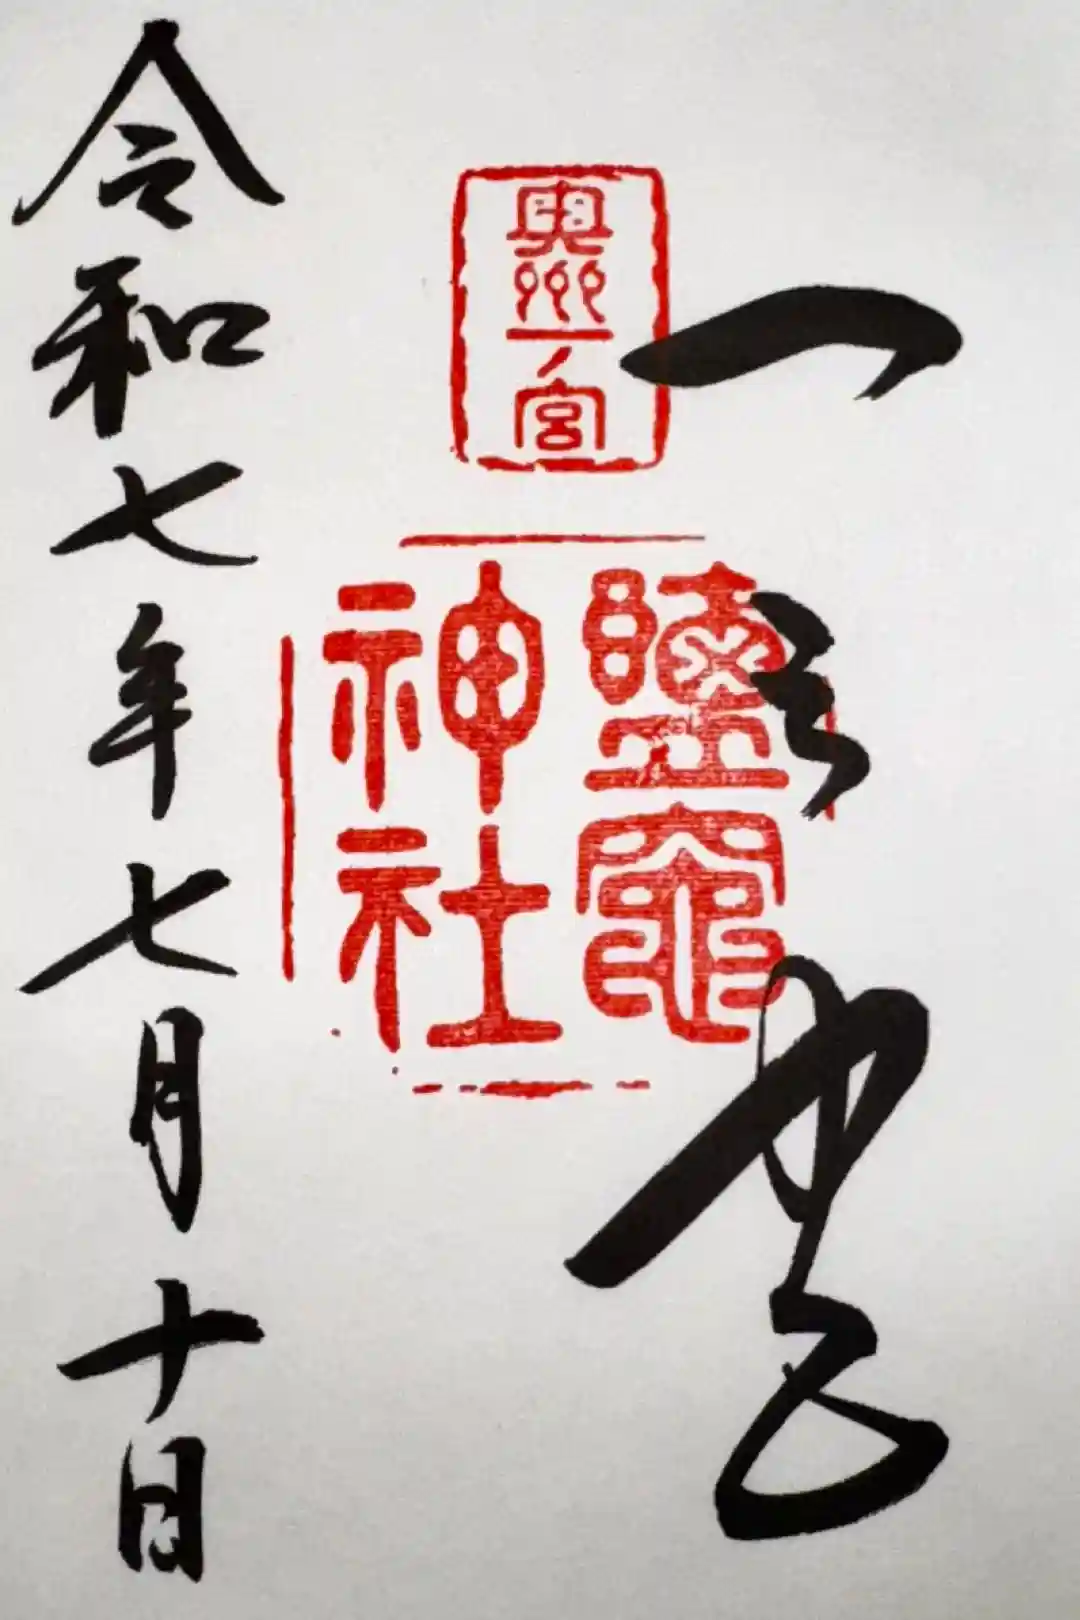 一之宮
奥州一ノ宮
鹽竈
神社
令和七年七月十日